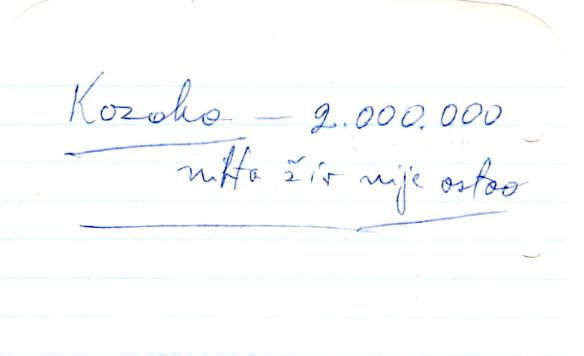 Kozaka — 2.000.000
nitko živ nije ostao